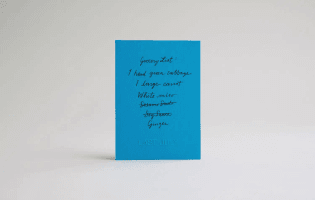 Grocery List
1 head green cabbage
1 large carrot
White miso
Sesame Seeds
Soy Sauce
Ginger